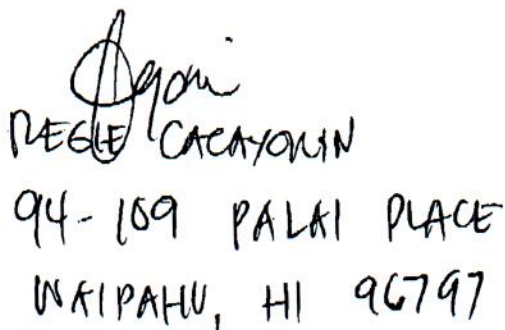 REGIE CACAYORIN
94-109 PALAI PLACE
WAIPAHU, HI 96797